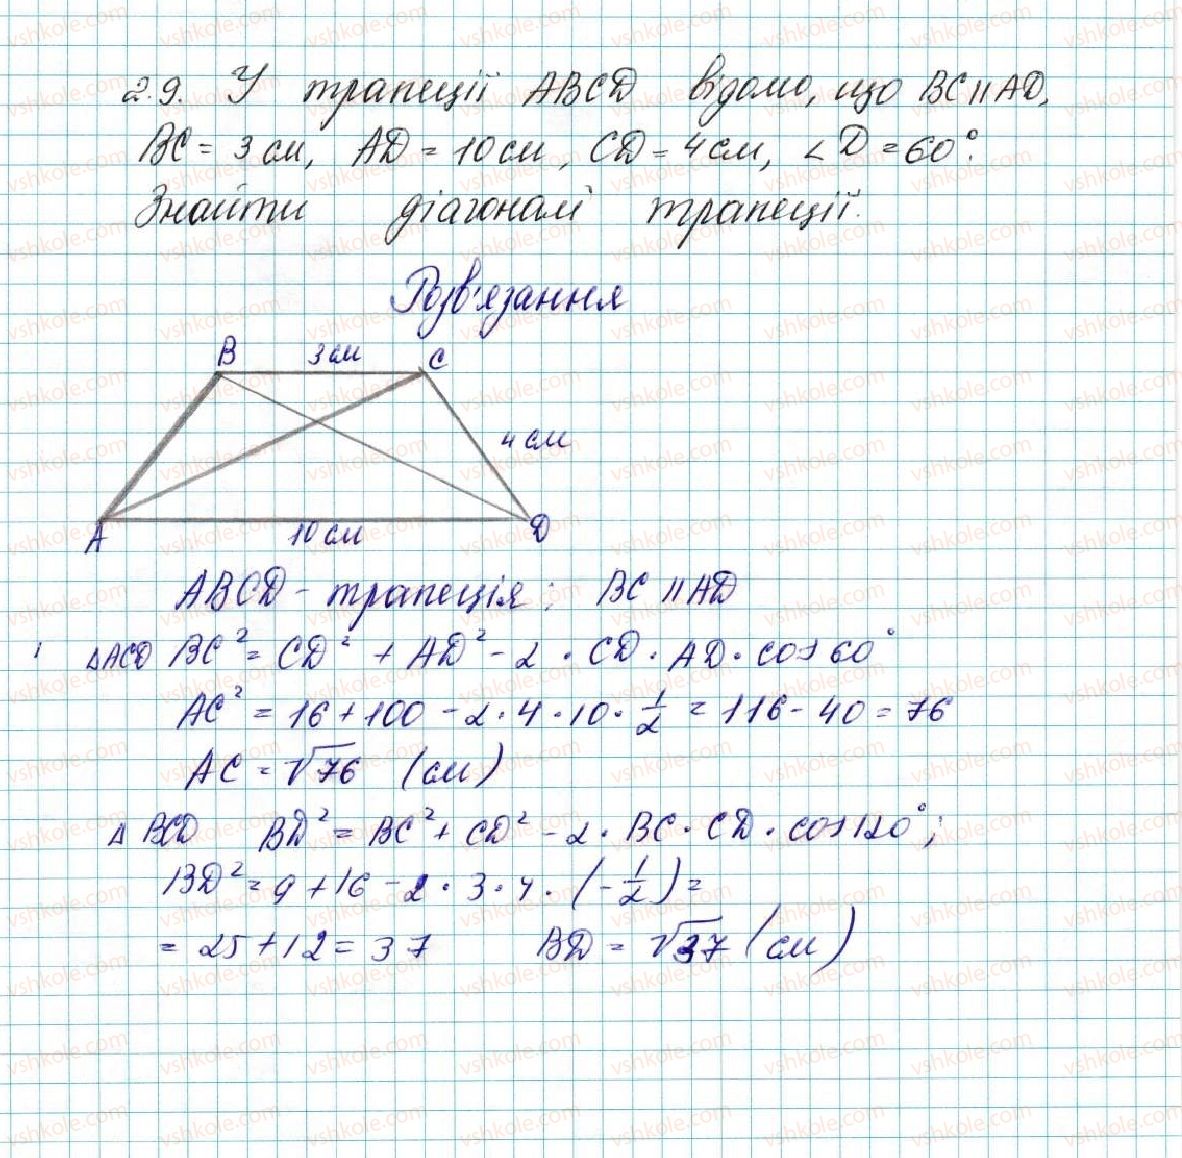 2.9. У трапеції ABCD відомо, що BC || AD,
BC = 3 см, AD = 10 см, CD = 4 см, ∠D = 60°.
Знайти діагоналі трапеції.
Розв'язання
B 3 см C
4 см
A 10 см D
ABCD - трапеція; BC || AD
△ACD BC² = CD² + AD² - 2 · CD · AD · cos 60°
AC² = 16 + 100 - 2 · 4 · 10 · 1/2 = 116 - 40 = 76
AC = √76 (см)
△ BCD BD² = BC² + CD² - 2 · BC · CD · cos 120°;
BD² = 9 + 16 - 2 · 3 · 4 · (-1/2) =
= 25 + 12 = 37 BD = √37 (см)